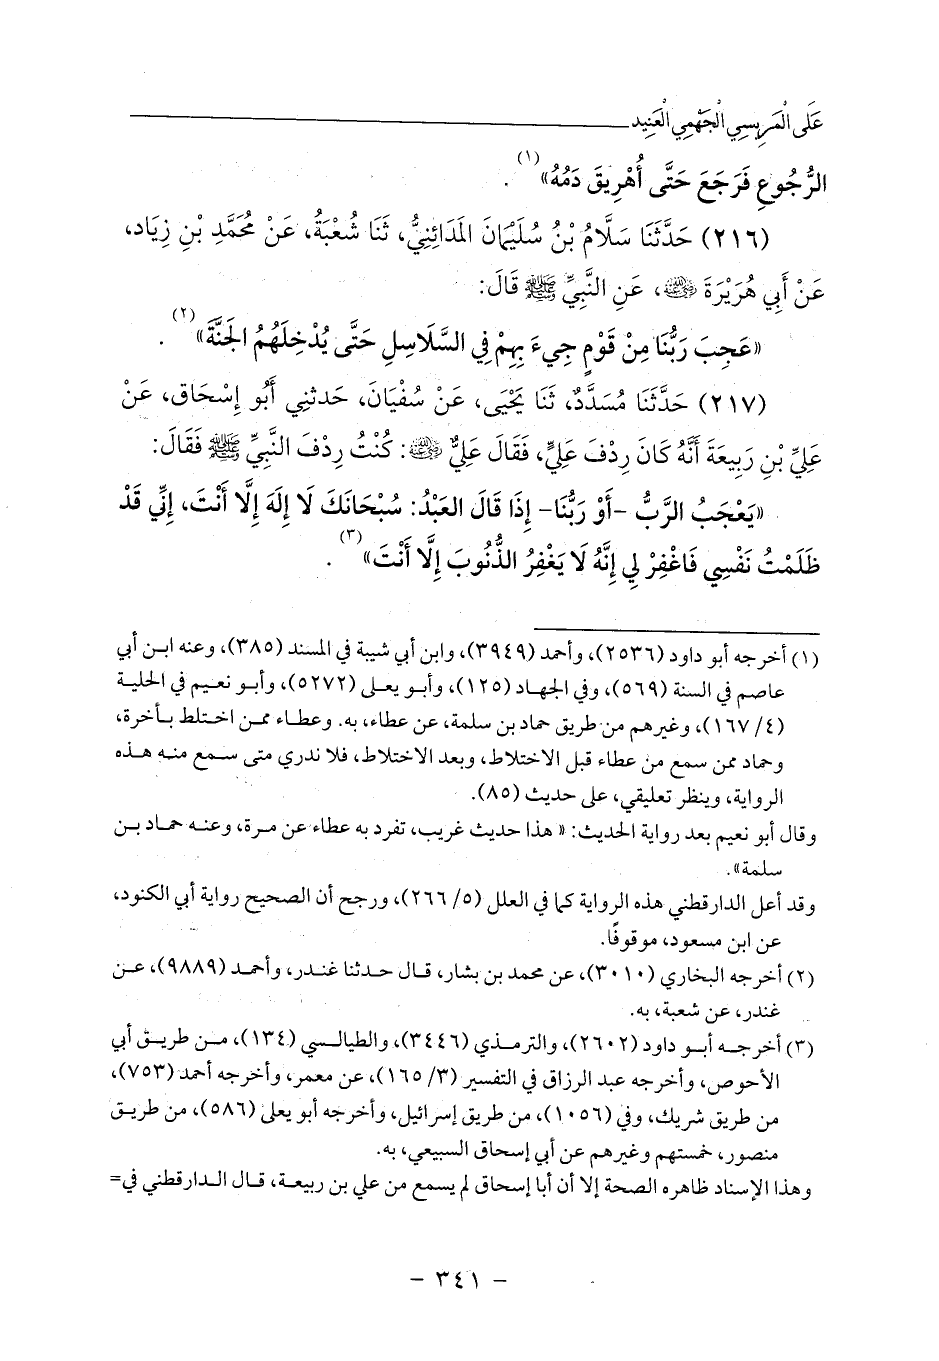 عَلَى الْمَرِيسِي الْجَهْمِي الْعَنِيد
الرُّجُوعِ فَرَجَعَ حَتَّى أُهْرِيقَ دَمُهُ» (١).
(٢١٦) حَدَّثَنَا سَلَّامُ بْنُ سُلَيْمَانَ المَدَائِنِيُّ، ثَنَا شُعْبَةُ، عَنْ مُحَمَّدِ بْنِ زِيَاد،
عَنْ أَبِي هُرَيْرَةَ رضي الله عنه، عَنِ النَّبِيِّ ﷺ قَالَ:
«عَجِبَ رَبُّنَا مِنْ قَوْمٍ جِيءَ بِهِمْ فِي السَّلَاسِلِ حَتَّى يُدْخِلَهُمُ الجَنَّةَ» (٢).
(٢١٧) حَدَّثَنَا مُسَدَّدٌ، ثَنَا يَحْيَى، عَنْ سُفْيَانَ، حَدثنِي أَبُو إِسْحَاق، عَنْ
عَلِيِّ بْنِ رَبِيعَةَ أَنَّهُ كَانَ رِدْفَ عَلِيٍّ، فَقَالَ عَلِيٌّ رضي الله عنه: كُنْتُ رِدْفَ النَّبِيِّ ﷺ فَقَالَ:
«يَعْجَبُ الرَّبُّ -أَوْ رَبُّنَا- إِذَا قَالَ العَبْدُ: سُبْحَانَكَ لَا إِلَهَ إِلَّا أَنْتَ، إِنِّي قَدْ
ظَلَمْتُ نَفْسِي فَاغْفِرْ لِي إِنَّهُ لَا يَغْفِرُ الذُّنُوبَ إِلَّا أَنْتَ» (٣).
(١) أخرجه أبو داود (٢٥٣٦)، وأحمد (٣٩٤٩)، وابن أبي شيبة في المسند (٣٨٥)، وعنه ابن أبي
عاصم في السنة (٥٦٩)، وفي الجهاد (١٢٥)، وأبو يعلى (٥٢٧٢)، وأبو نعيم في الحلية
(٤/ ١٦٧)، وغيرهم من طريق حماد بن سلمة، عن عطاء، به. وعطاء ممن اختلط بأخرة،
وحماد ممن سمع من عطاء قبل الاختلاط، وبعد الاختلاط، فلا ندري متى سمع منه هذه
الرواية، وينظر تعليقي، على حديث (٨٥).
وقال أبو نعيم بعد رواية الحديث: « هذا حديث غريب، تفرد به عطاء عن مرة، وعنه حماد بن
سلمة».
وقد أعل الدارقطني هذه الرواية كما في العلل (٥/ ٢٦٦)، ورجح أن الصحيح رواية أبي الكنود،
عن ابن مسعود، موقوفًا.
(٢) أخرجه البخاري (٣٠١٠)، عن محمد بن بشار، قال حدثنا غندر، وأحمد (٩٨٨٩)، عن
غندر، عن شعبة، به.
(٣) أخرجه أبو داود (٢٦٠٢)، والترمذي (٣٤٤٦)، والطيالسي (١٣٤)، من طريق أبي
الأحوص، وأخرجه عبد الرزاق في التفسير (٣/ ١٦٥)، عن معمر، وأخرجه أحمد (٧٥٣)،
من طريق شريك، وفي (١٠٥٦)، من طريق إسرائيل، وأخرجه أبو يعلى (٥٨٦)، من طريق
منصور، خمستهم وغيرهم عن أبي إسحاق السبيعي، به.
وهذا الإسناد ظاهره الصحة إلا أن أبا إسحاق لم يسمع من علي بن ربيعة، قال الدارقطني في=
- ٣٤١ -